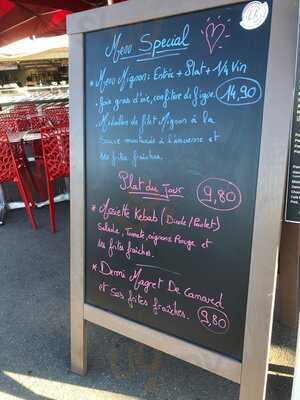 Menu Special
* Menu Mignon: Entrée + Plat + 1/4 Vin
foie gras d'oie, confiture de figue. 14,90
Médaillon de filet Mignon à la
Sauce moutarde à l'ancienne et
ses frites fraîches.
Plat du Jour 9,80
* Assiette Kebab (Dinde/Poulet)
Salade, Tomate, oignons Rouge et
les frites fraîches.
* Demi Magret De Canard
et Ses frites fraîches. 9,80